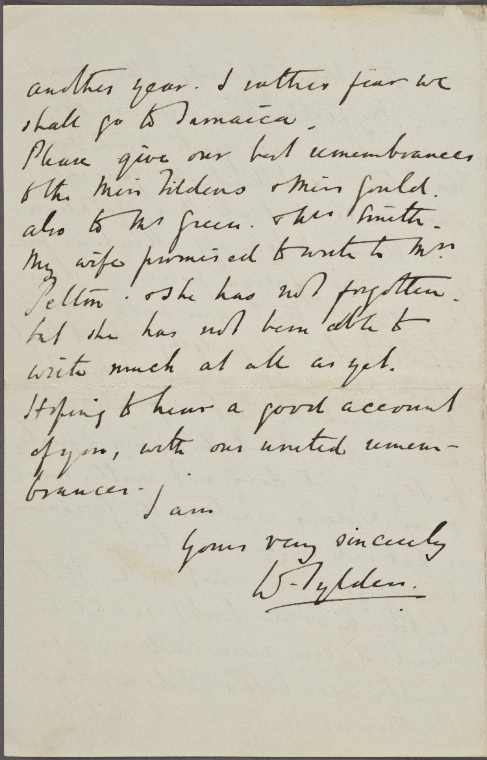 another year. I rather fear we
shall go to Jamaica.
Please give our best remembrances
to the Miss Tildens & Miss Gould.
also to Mr Green. & Mrs Smith.
My wife promised to write to Mrs
Pelton. & she has not forgotten.
but she has not been able to
write much at all as yet.
Hoping to hear a good account
of you, with our united remem-
brances.
I am
Yours very sincerely
W. Tylden.